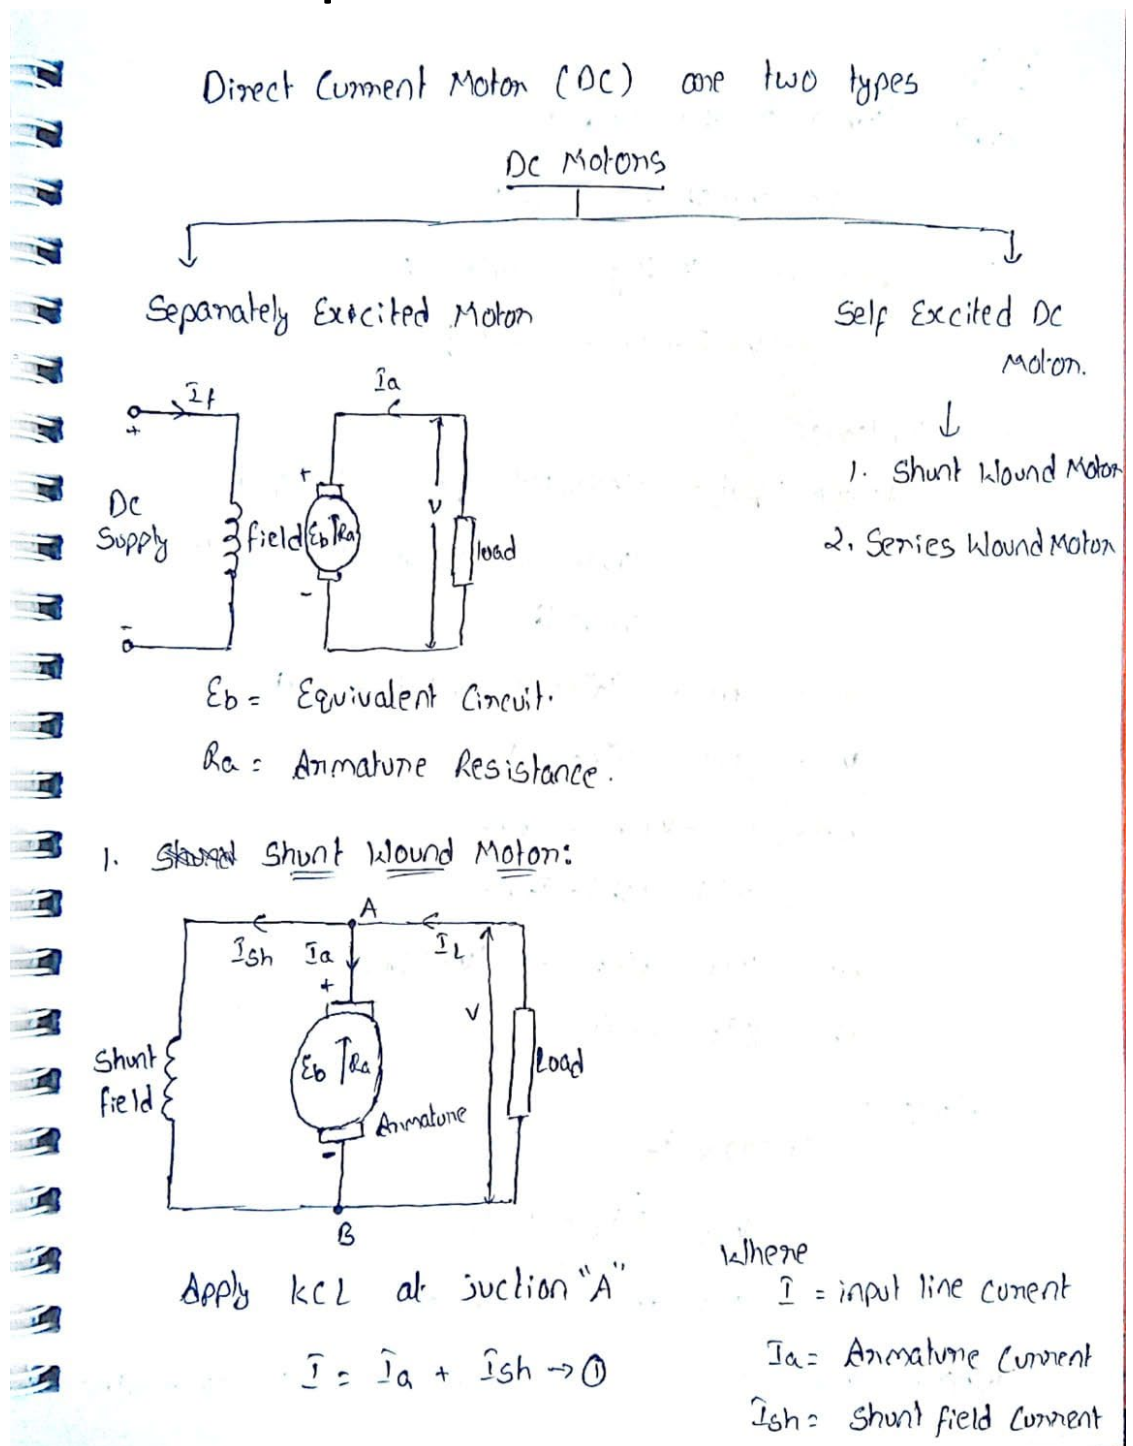 Direct Current Motor (DC) are two types
DC Motors
Separately Excited Motor
Self Excited DC
Motor.
1. Shunt Wound Motor
2. Series Wound Motor
If
Ia
+
DC
Supply
-
field
+
Eb
Ra
-
V
load
Eb = Equivalent Circuit.
Ra = Armature Resistance.
1. Shunt Wound Motor:
A
Ish
Ia
IL
+
V
Shunt
field
Eb
Ra
Load
Armature
-
B
Apply KCL at juction "A"
I = Ia + Ish → ①
Where
I = input line current
Ia = Armature Current
Ish = Shunt field Current